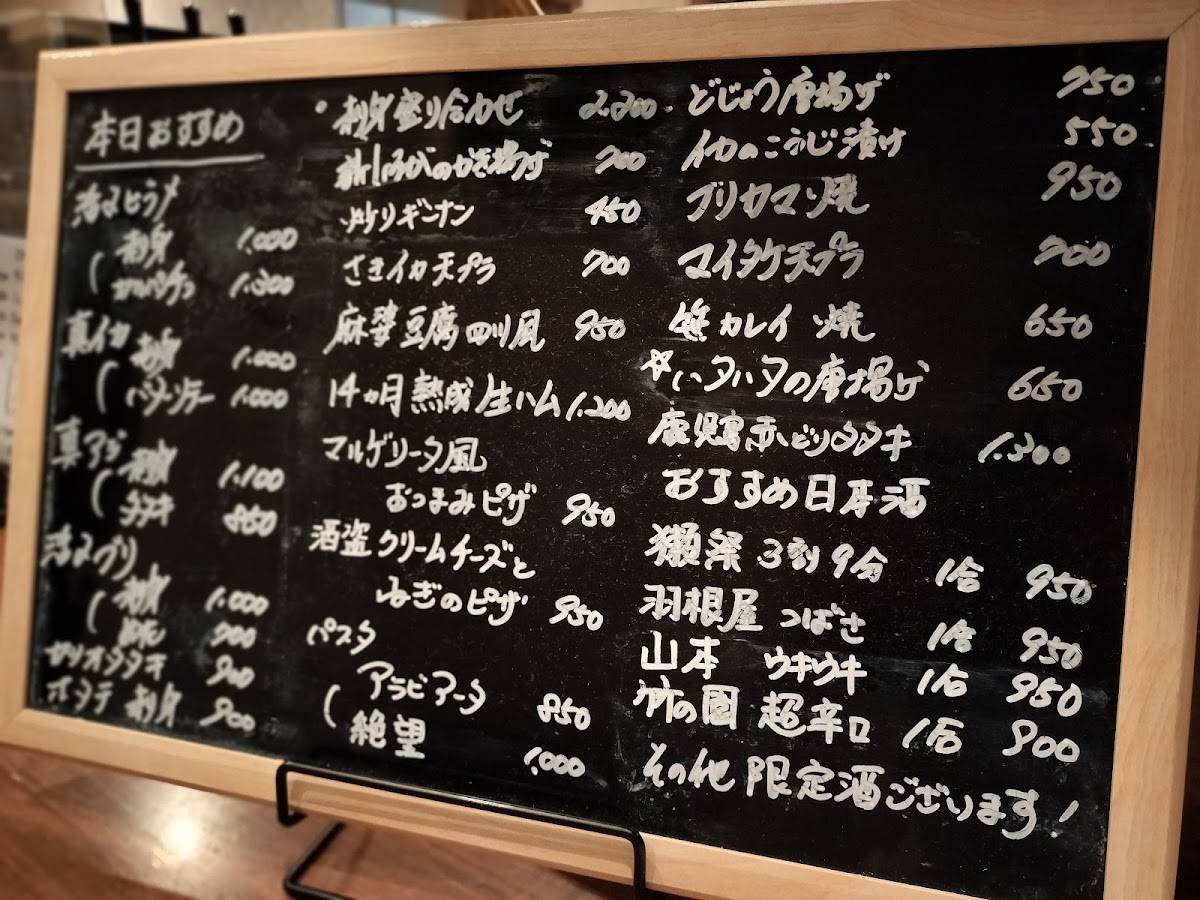 本日おすすめ
活〆ヒラメ
刺身 1.000
カルパッチョ 1.300
真イカ
刺身 1.000
バターソテー 1.000
真アジ
刺身 1.100
タタキ 850
活〆ブリ
刺身 1.000
900
カツオタタキ 900
ホタテ 刺身 900
刺身盛り合わせ 2.200
のかき揚げ 700
炒りギンナン 450
さきイカ天プラ 700
麻婆豆腐 四川風 950
14ヵ月熟成生ハム 1.200
マルゲリータ風
おつまみピザ 950
酒盗クリームチーズと
ねぎのピザ 950
パスタ
アラビアータ 850
絶望 1.000
どじょう唐揚げ 750
イカのこうじ漬け 550
ブリカマ 焼 950
マイタケ天プラ 700
笹カレイ 焼 650
☆ハタハタの唐揚げ 650
鹿児島赤どりタタキ 1.300
おすすめ日本酒
獺祭 3割9分 1合 950
羽根屋 つばさ 1合 950
山本 ウキウキ 1合 950
竹の園 超辛口 1合 900
その他限定酒ございます!